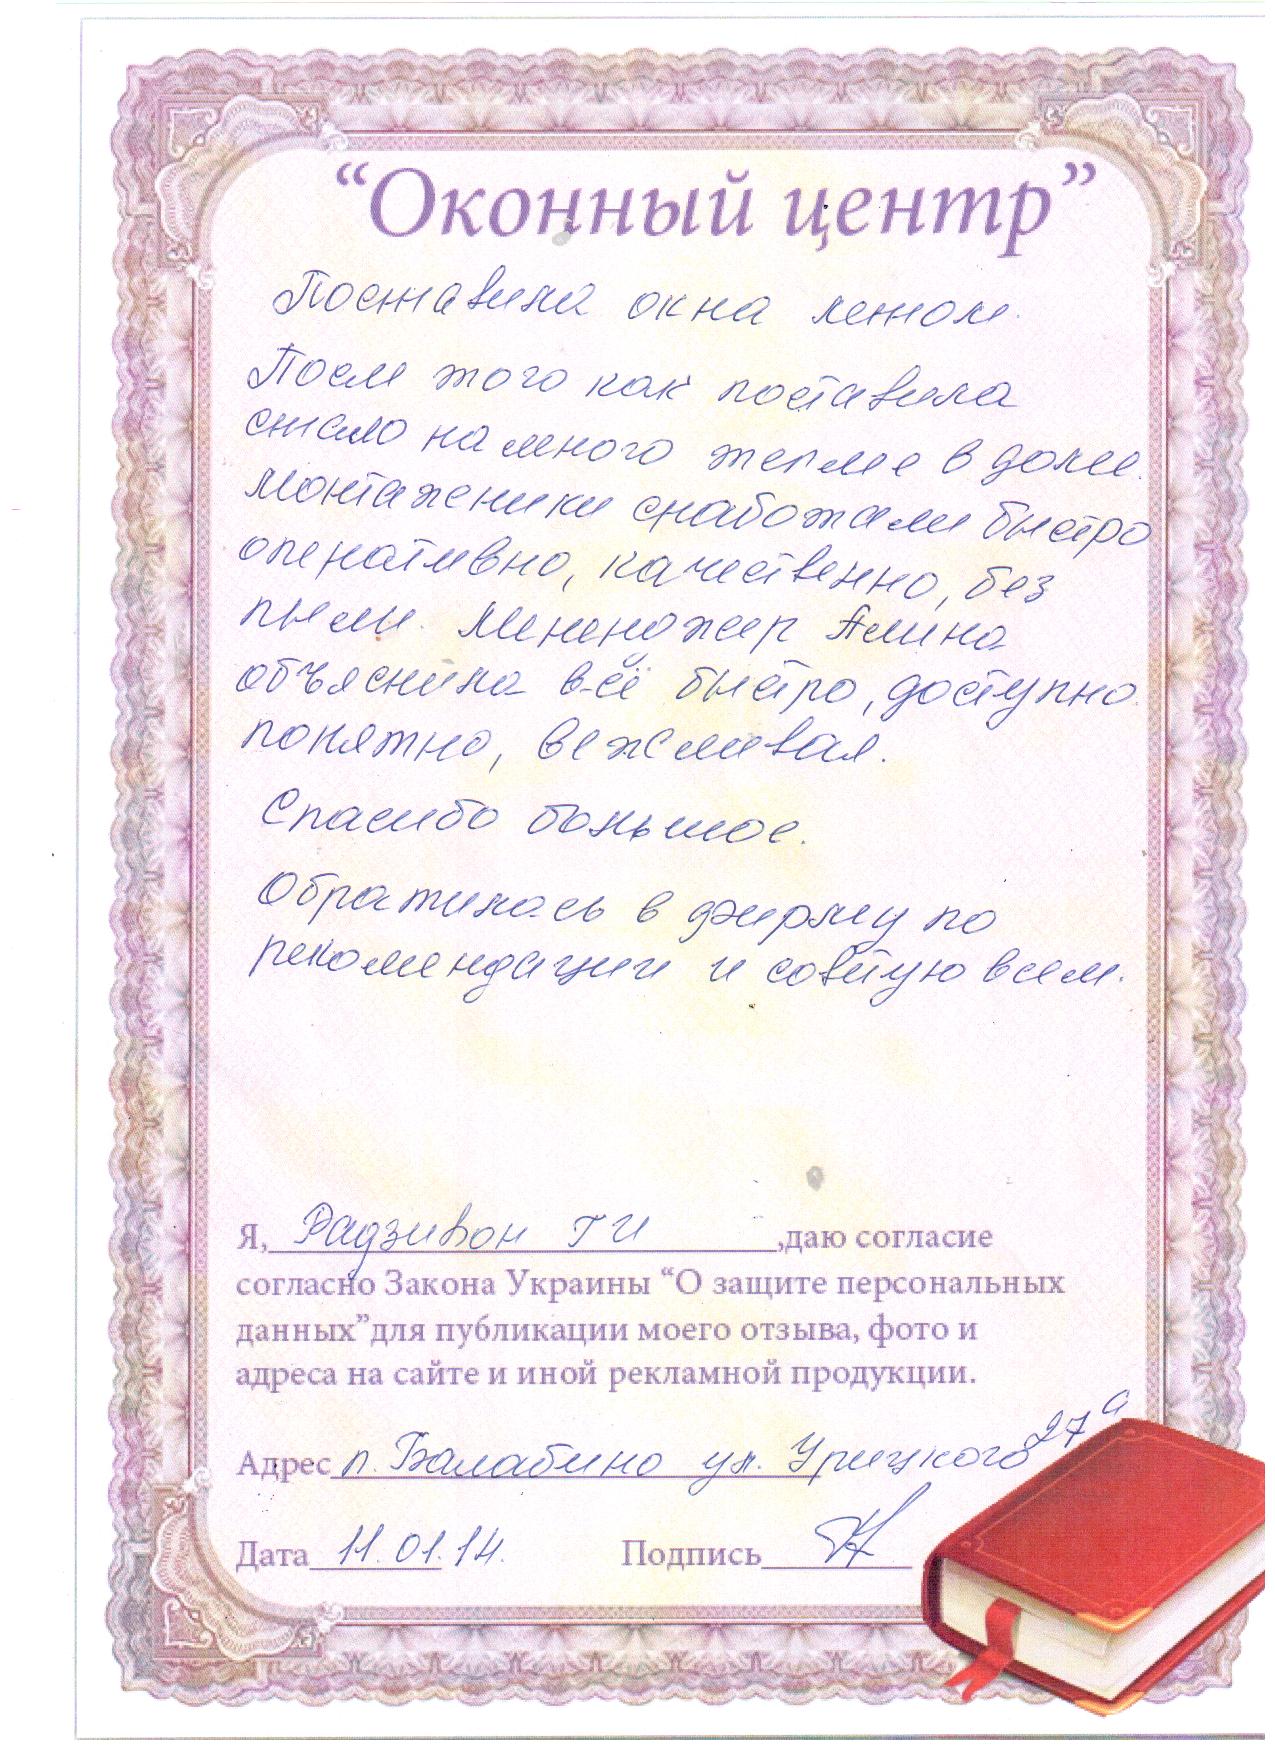 “Оконный центр”
Поставила окна летом.
После того как поставила
стало на много теплее в доме.
Монтаженики сработали быстро
оперативно, качественно, без
пыли. Мененджер Алина
объяснила всё быстро, доступно.
понятно, вежливая.
Спасибо большое.
Обратилась в фирму по
рекомендации и советую всем.
Я, Радзивон Г И ,даю согласие
согласно Закона Украины “О защите персональных
данных”для публикации моего отзыва, фото и
адреса на сайте и иной рекламной продукции.
Адрес п. Балабино ул. Урицкого 27 а
Дата 11.01.14. Подпись